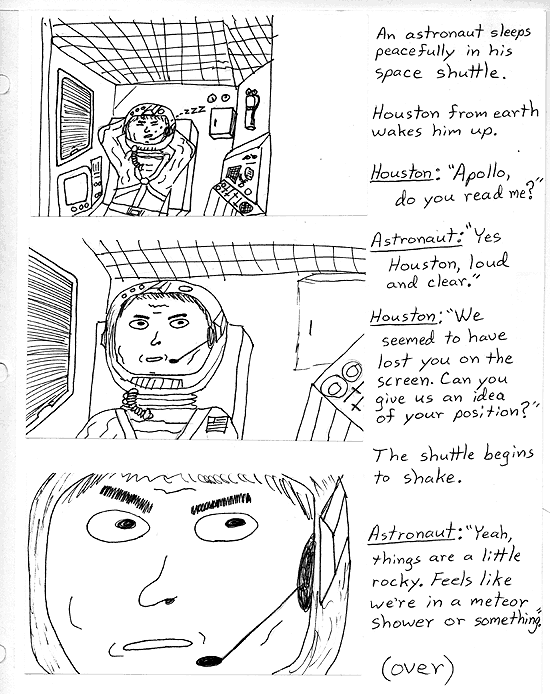 zzz
An astronaut sleeps
peacefully in his
space shuttle.
Houston from earth
wakes him up.
Houston: "Apollo,
do you read me?"
Astronaut: "Yes
Houston, loud
and clear."
Houston: "We
seemed to have
lost you on the
screen. Can you
give us an idea
of your position?"
The shuttle begins
to shake.
Astronaut: "Yeah,
things are a little
rocky. Feels like
we're in a meteor
shower or something."
(over)